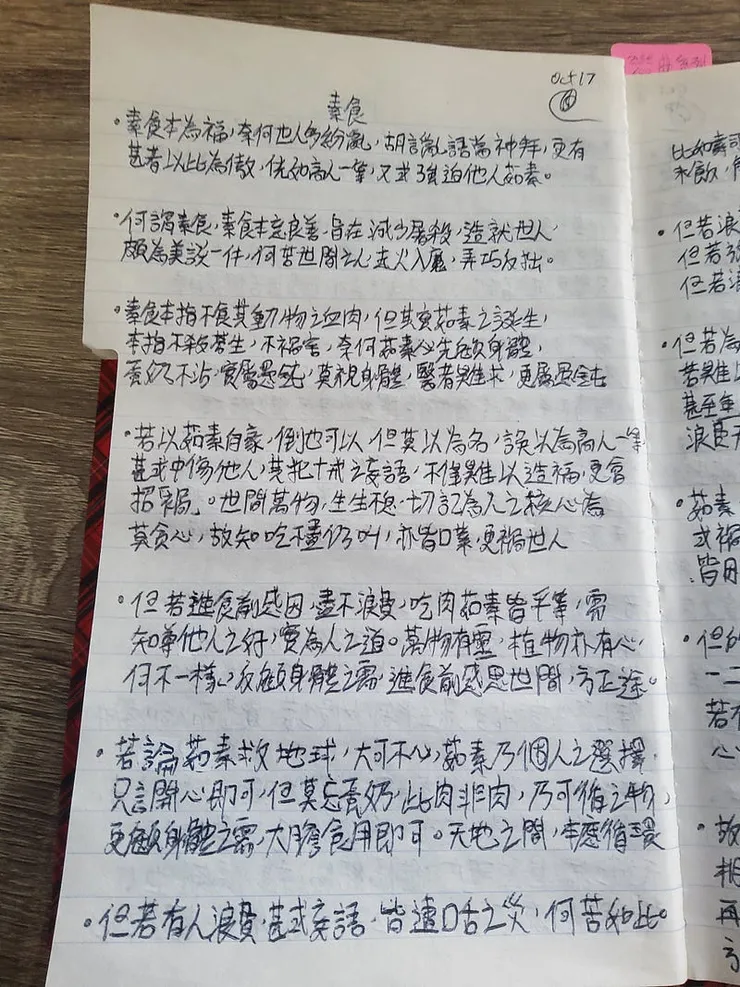 Oct 17
素食
•素食本為福,奈何世人多紛亂,胡言亂語當神拜,更有
甚者以此為傲,恍如高人一等,又或強迫他人茹素。
•何謂素食,素食本意良善,旨在減少屠殺,造就世人,
頗為美談一件,何苦世間之人走火入魔,弄巧反拙。
•素食本指不食其動物之血肉,但其實茹素之誕生,
本指不殺蒼生,不禍害,奈何茹素必先顧身體,
蛋奶不沾,實屬愚鈍,莫視身體,醫者難求,更屬愚鈍
•若以茹素自豪,倒也可以,但莫以為名,誤以為高人一等
甚或中傷他人,其犯十戒之妄語,不僅難以造福,更會
招禍。世間萬物,生生不息,切記為人之核心為
莫貪心,故知吃不盡仍叫,亦皆口業,更禍世人
•但若進食前感因,盡不浪費,吃肉茹素皆平等,需
知尊他人之好,實為人之道。萬物有靈,植物亦有心,
何不一樣,反顧身體之需,進食前感思世間,方正途。
•若論茹素救地球,大可不必,茹素乃個人之選擇
只言開心即可,但莫忘蛋奶,此肉非肉,乃可循之物,
更顧身體之需,大膽食用即可。天地之間,本應循環
•但若有人浪費,甚或妄語,皆遭口舌之災,何苦如此。
比如壽司
•但若浪
但若強
但若浪
•但若為
若難以
甚至年
•茹素
或禍
皆因
•但
一二
若不
心
•故
再
方